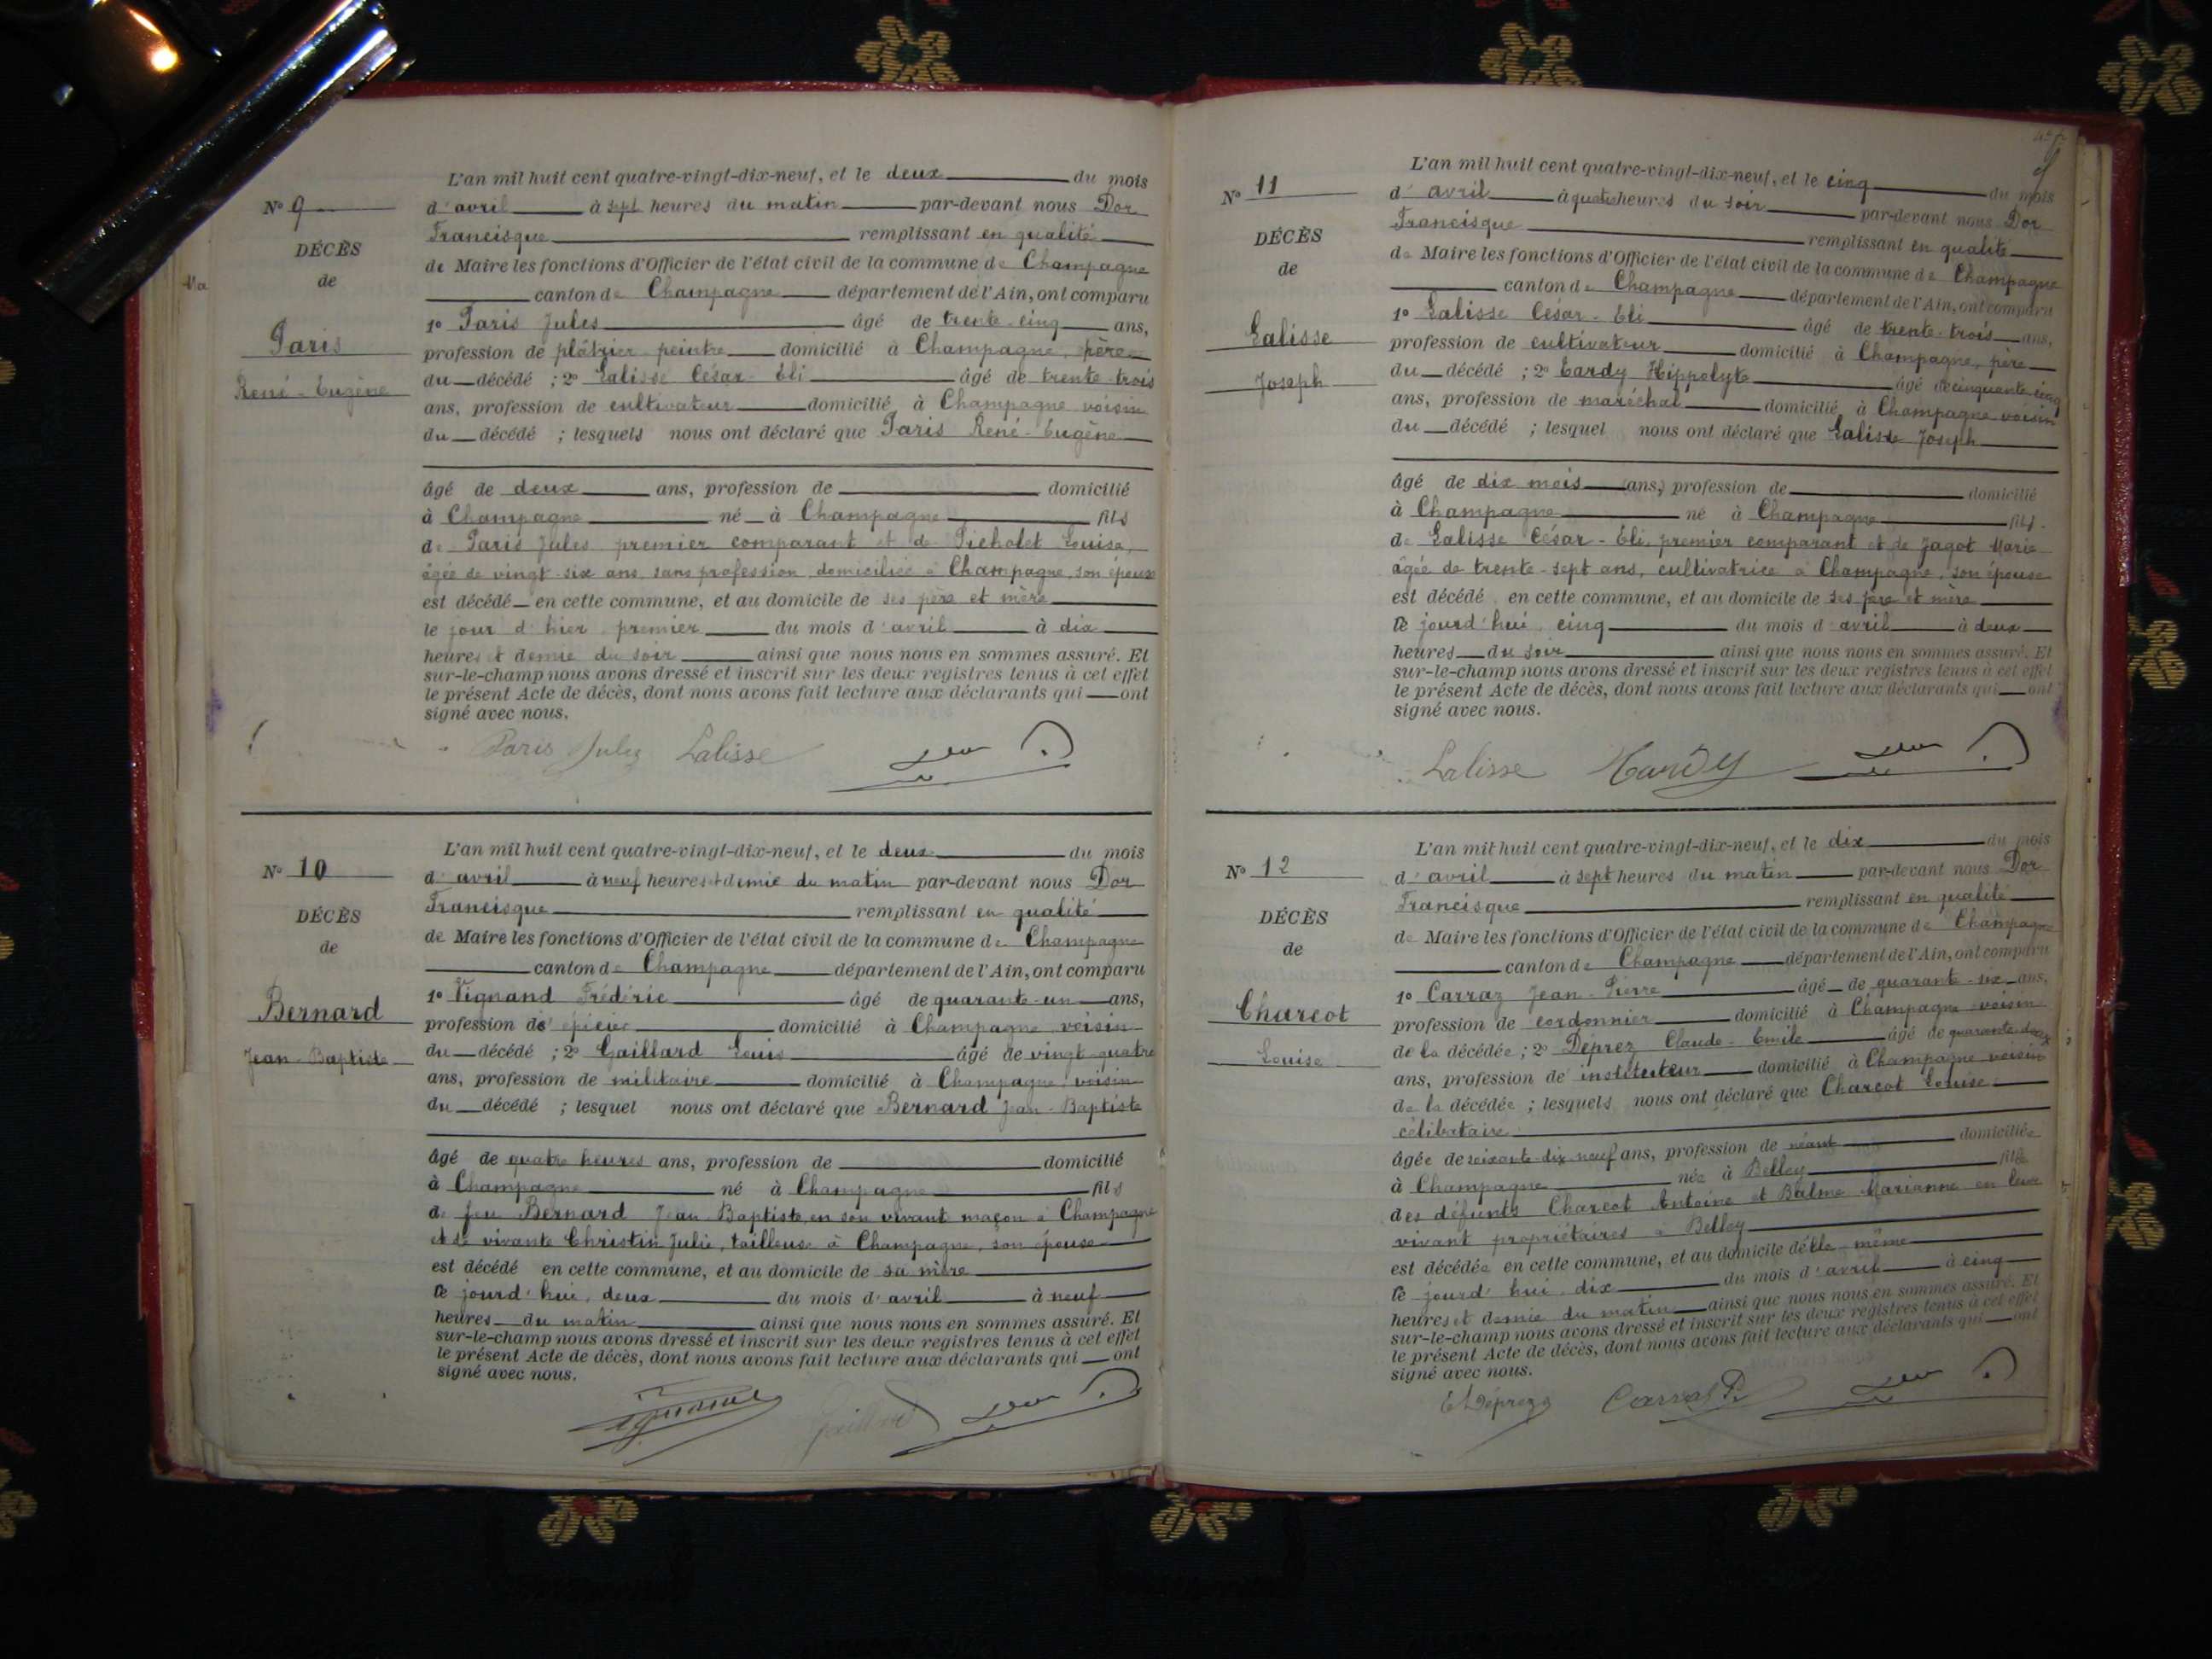 L'an mil huit cent quatre-vingt-dix-neuf, et le deux du mois
N° 9
d'avril à sept heures du matin par-devant nous Dor
Francisque remplissant en qualité
DÉCÈS
de Maire les fonctions d'Officier de l'état civil de la commune de Champagne
de
canton de Champagne département de l'Ain, ont comparu
1° Paris Jules âgé de trente-cinq ans,
Paris
profession de plâtrier peintre domicilié à Champagne, père
du décédé ; 2° Lalisse César-Eli âgé de trente-trois
René-Eugène
ans, profession de cultivateur domicilié à Champagne voisin
du décédé ; lesquels nous ont déclaré que Paris René-Eugène
âgé de deux ans, profession de domicilié
à Champagne né à Champagne fils
de Paris Jules premier comparant et de Picholet Louise,
âgée de vingt-six ans sans profession domiciliée à Champagne, son épouse
est décédé en cette commune, et au domicile de ses père et mère
le jour d'hier premier du mois d'avril à dix
heures et demie du soir ainsi que nous nous en sommes assuré. Et
sur-le-champ nous avons dressé et inscrit sur les deux registres tenus à cet effet
le présent Acte de décès, dont nous avons fait lecture aux déclarants qui ont
signé avec nous.
Paris Jules Lalisse
L'an mil huit cent quatre-vingt-dix-neuf, et le deux du mois
N° 10
d'avril à neuf heures et demie du matin par-devant nous Dor
Francisque remplissant en qualité
DÉCÈS
de Maire les fonctions d'Officier de l'état civil de la commune de Champagne
de
canton de Champagne département de l'Ain, ont comparu
1° Vignand Frédéric âgé de quarante-un ans,
Bernard
profession de épicier domicilié à Champagne voisin
du décédé ; 2° Gaillard Louis âgé de vingt-quatre
Jean-Baptiste
ans, profession de militaire domicilié à Champagne voisin
du décédé ; lesquel nous ont déclaré que Bernard Jean-Baptiste
âgé de quatre heures ans, profession de domicilié
à Champagne né à Champagne fils
de feu Bernard Jean-Baptiste, en son vivant maçon à Champagne
et de vivante Christin Julie, tailleuse à Champagne, son épouse
est décédé en cette commune, et au domicile de sa mère
ce jourd'hui, deux du mois d'avril à neuf
heures du matin ainsi que nous nous en sommes assuré. Et
sur-le-champ nous avons dressé et inscrit sur les deux registres tenus à cet effet
le présent Acte de décès, dont nous avons fait lecture aux déclarants qui ont
signé avec nous.
Gaillard
L'an mil huit cent quatre-vingt-dix-neuf, et le cinq du mois
N° 11
d'avril à quatre heures du soir par-devant nous Dor
Francisque remplissant en qualité
DÉCÈS
de Maire les fonctions d'Officier de l'état civil de la commune de Champagne
de
canton de Champagne département de l'Ain, ont comparu
1° Lalisse César-Eli âgé de trente-trois ans,
Lalisse
profession de cultivateur domicilié à Champagne, père
du décédé ; 2° Tardy Hippolyte âgé de cinquante-cinq
Joseph
ans, profession de maréchal domicilié à Champagne voisin
du décédé ; lesquel nous ont déclaré que Lalisse Joseph
âgé de dix mois ans, profession de domicilié
à Champagne né à Champagne fils
de Lalisse César-Eli, premier comparant et de Jagot Marie
âgée de trente-sept ans, cultivatrice à Champagne, son épouse
est décédé en cette commune, et au domicile de ses père et mère
ce jourd'hui, cinq du mois d'avril à deux
heures du soir ainsi que nous nous en sommes assuré. Et
sur-le-champ nous avons dressé et inscrit sur les deux registres tenus à cet effet
le présent Acte de décès, dont nous avons fait lecture aux déclarants qui ont
signé avec nous.
Lalisse Tardy
L'an mil huit cent quatre-vingt-dix-neuf, et le dix du mois
N° 12
d'avril à sept heures du matin par-devant nous Dor
Francisque remplissant en qualité
DÉCÈS
de Maire les fonctions d'Officier de l'état civil de la commune de Champagne
de
canton de Champagne département de l'Ain, ont comparu
1° Carraz Jean-Pierre âgé de quarante-six ans,
Charcot
profession de cordonnier domicilié à Champagne voisin
Louise
de la décédée ; 2° Déprez Claude-Emile âgé de quarante-deux
ans, profession de instituteur domicilié à Champagne voisin
de la décédée ; lesquels nous ont déclaré que Charcot Louise
célibataire
âgée de soixante-dix-neuf ans, profession de néant domiciliée
à Champagne née à Belley fille
des défunts Charcot Antoine et Balme Marianne en leur
vivant propriétaires à Belley
est décédée en cette commune, et au domicile d'elle-même
ce jourd'hui dix du mois d'avril à cinq
heures et demie du matin ainsi que nous nous en sommes assuré. Et
sur-le-champ nous avons dressé et inscrit sur les deux registres tenus à cet effet
le présent Acte de décès, dont nous avons fait lecture aux déclarants qui ont
signé avec nous.
E Déprez Carraz P.